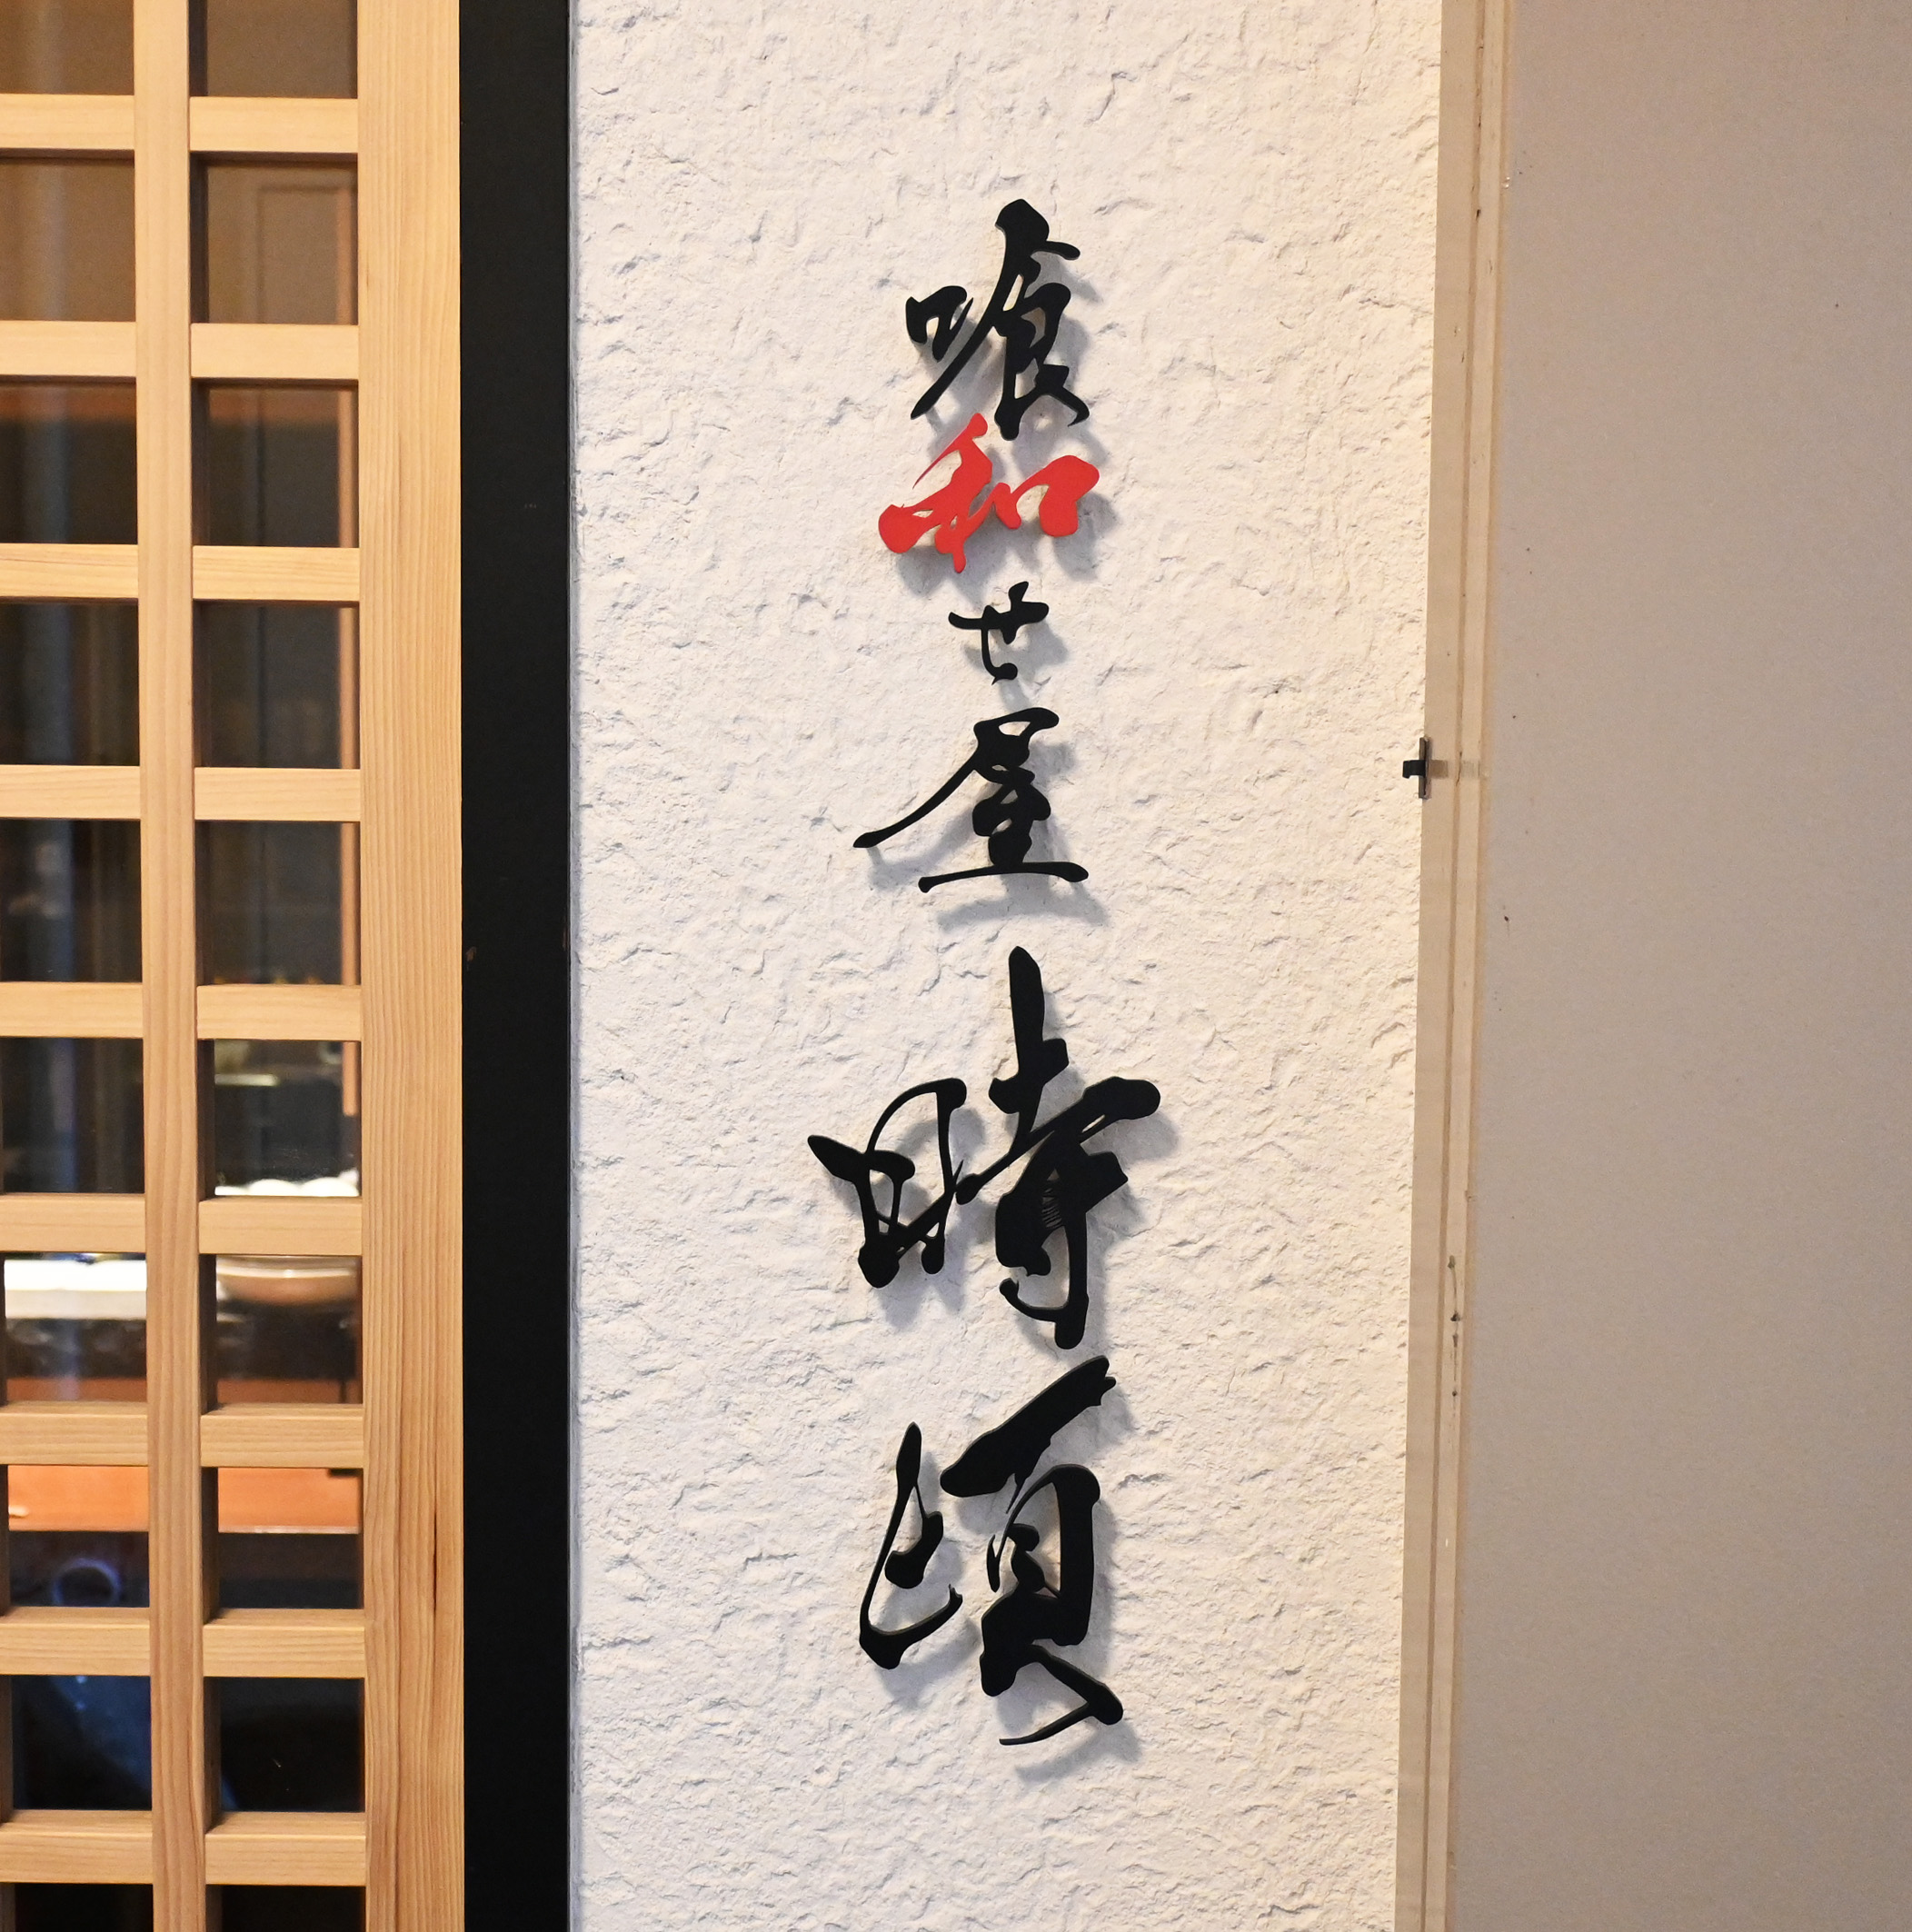 喰和せ屋時頃